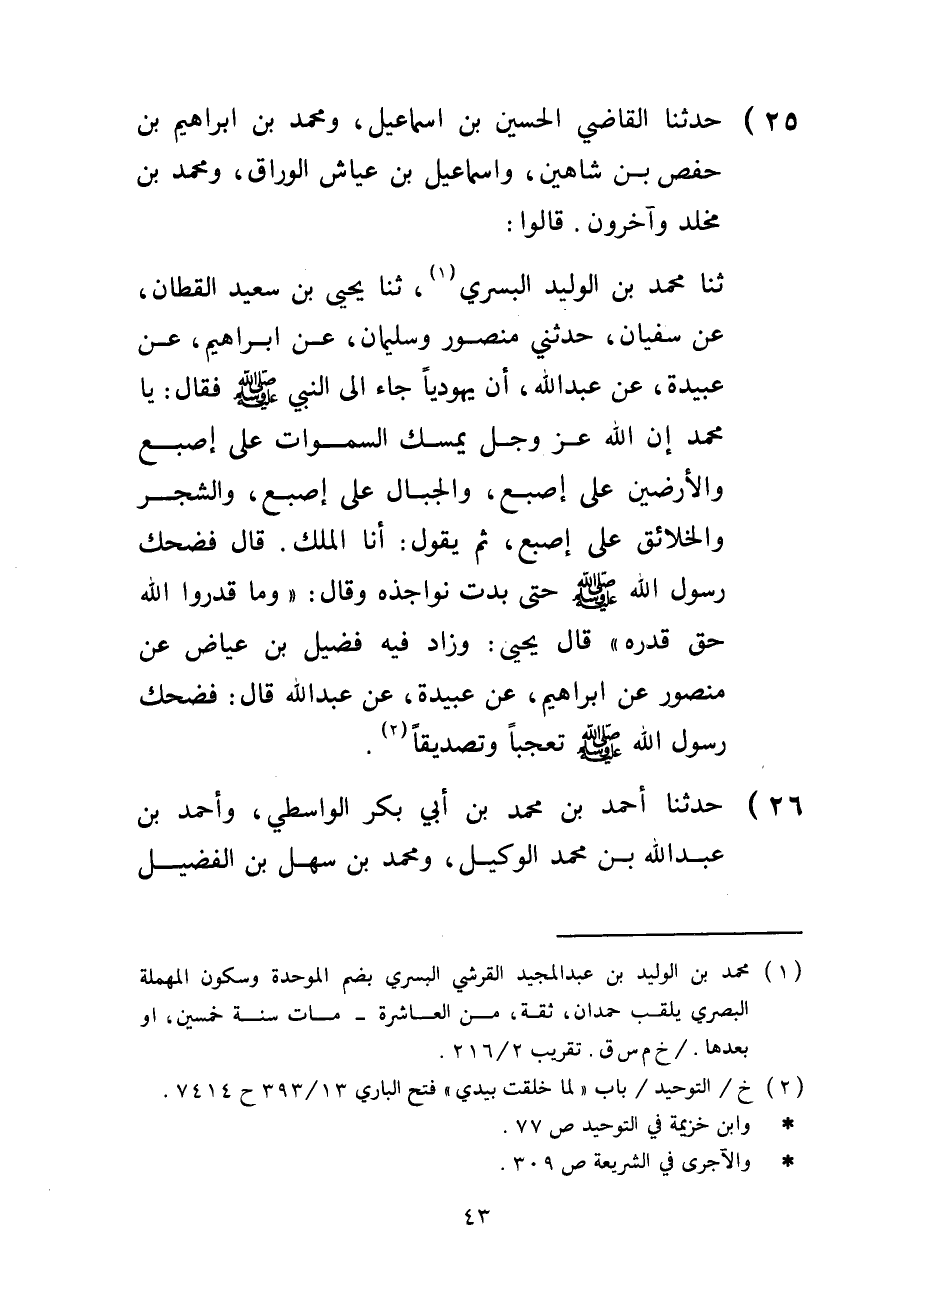 ٢٥ ) حدثنا القاضي الحسين بن اسماعيل، ومحمد بن ابراهيم بن
حفص بن شاهين، واسماعيل بن عياش الوراق، ومحمد بن
مخلد وآخرون. قالوا:
ثنا محمد بن الوليد البسري(١)، ثنا يحيى بن سعيد القطان،
عن سفيان، حدثني منصور وسليمان، عن ابراهيم، عن
عبيدة، عن عبدالله، أن يهودياً جاء الى النبي ﷺ فقال: يا
محمد إن الله عز وجل يمسك السموات على إصبع
والأرضين على إصبع، والجبال على إصبع، والشجر
والخلائق على إصبع، ثم يقول: أنا الملك. قال فضحك
رسول الله ﷺ حتى بدت نواجذه وقال: «وما قدروا الله
حق قدره» قال يحيى: وزاد فيه فضيل بن عياض عن
منصور عن ابراهيم، عن عبيدة، عن عبدالله قال: فضحك
رسول الله ﷺ تعجباً وتصديقاً(٢).
٢٦ ) حدثنا أحمد بن محمد بن أبي بكر الواسطي، وأحمد بن
عبدالله بن محمد الوكيل، ومحمد بن سهل بن الفضيل
(١) محمد بن الوليد بن عبدالمجيد القرشي البسري بضم الموحدة وسكون المهملة
البصري يلقب حمدان، ثقة، من العاشرة - مات سنة خمسين، او
بعدها. / خ م س ق. تقريب ٢١٦/٢.
(٢) خ / التوحيد / باب «لما خلقت بيدي» فتح الباري ٣٩٣/١٣ ح ٧٤١٤.
* وابن خزيمة في التوحيد ص ٧٧.
* والآجرى في الشريعة ص ٣٠٩.
٤٣